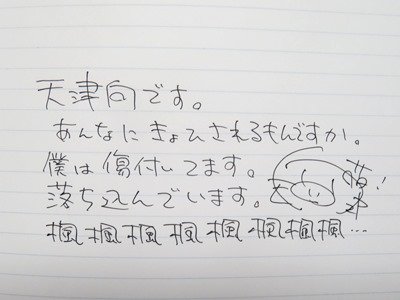 天津向です。
あんなにきょひされるもんですか。
僕は傷付いてます。
落ち込んでいます。
楓楓楓楓楓楓楓楓…